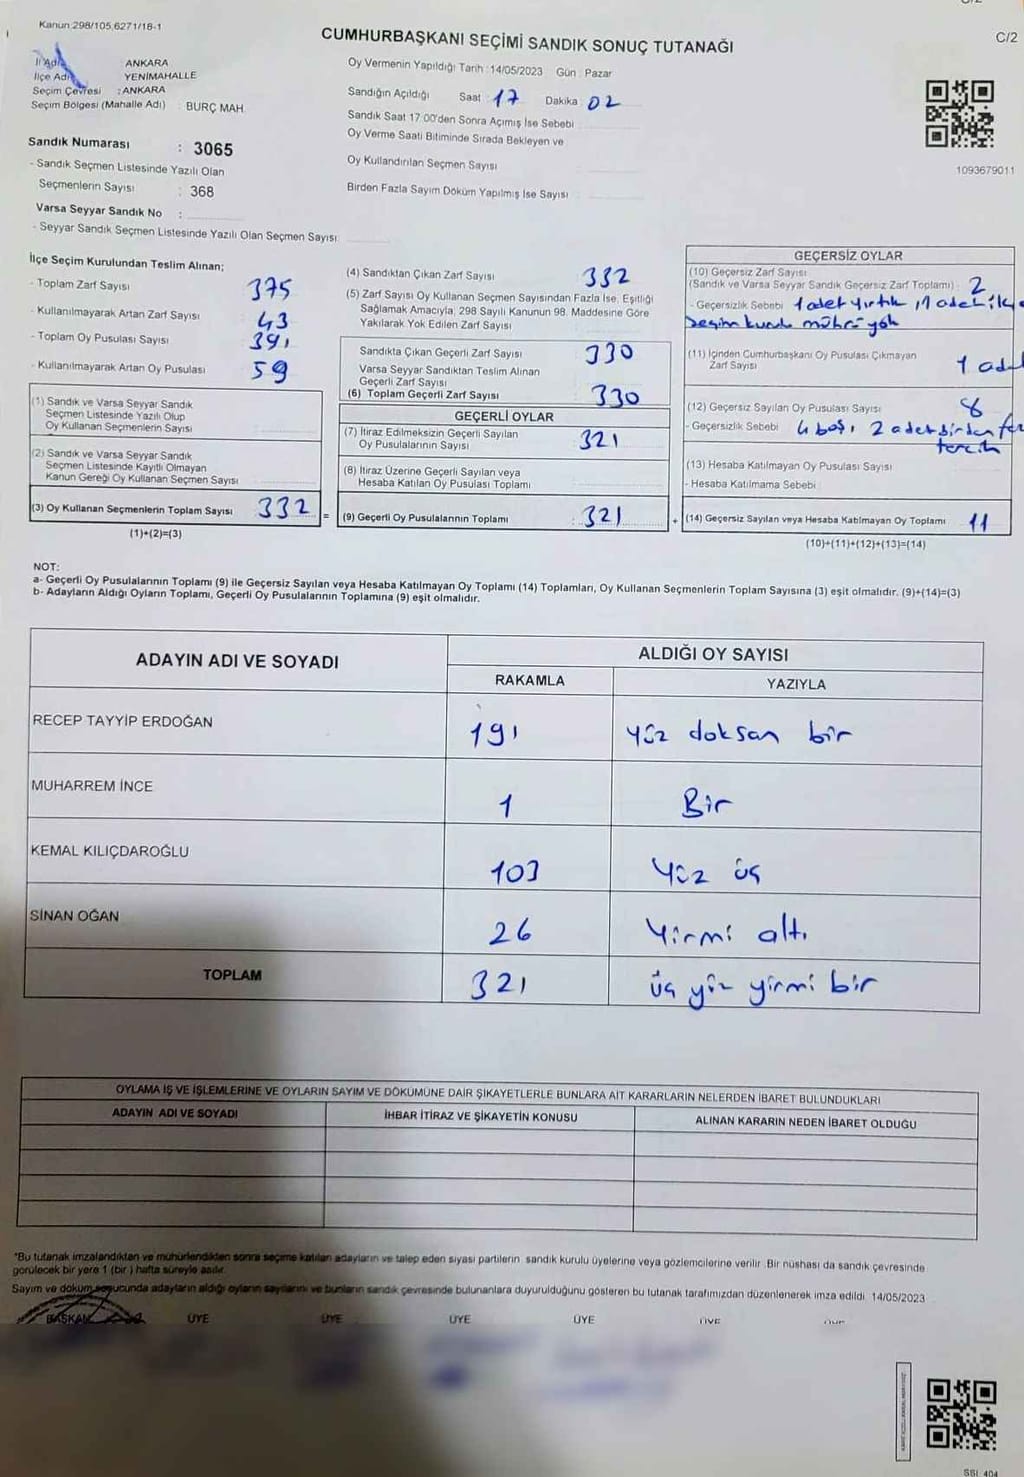 Kanun:298/105,6271/18-1
CUMHURBAŞKANI SEÇİMİ SANDIK SONUÇ TUTANAĞI
C/2
İl Adı ANKARA
İlçe Adı YENİMAHALLE
Seçim Çevresi : ANKARA
Seçim Bölgesi (Mahalle Adı) : BURÇ MAH.
Sandık Numarası : 3065
- Sandık Seçmen Listesinde Yazılı Olan
Seçmenlerin Sayısı : 368
Varsa Seyyar Sandık No :
- Seyyar Sandık Seçmen Listesinde Yazılı Olan Seçmen Sayısı:
Oy Vermenin Yapıldığı Tarih :14/05/2023 Gün : Pazar
Sandığın Açıldığı Saat : 17 Dakika : 02
Sandık Saat 17.00'den Sonra Açımış İse Sebebi :
Oy Verme Saati Bitiminde Sırada Bekleyen ve
Oy Kullandırılan Seçmen Sayısı :
Birden Fazla Sayım Döküm Yapılmış İse Sayısı :
1093679011
İlçe Seçim Kurulundan Teslim Alınan;
- Toplam Zarf Sayısı : 375
- Kullanılmayarak Artan Zarf Sayısı : 43
- Toplam Oy Pusulası Sayısı : 391
- Kullanılmayarak Artan Oy Pusulası : 59
(1) Sandık ve Varsa Seyyar Sandık
Seçmen Listesinde Yazılı Olup
Oy Kullanan Seçmenlerin Sayısı :
(2) Sandık ve Varsa Seyyar Sandık
Seçmen Listesinde Kayıtlı Olmayan
Kanun Gereği Oy Kullanan Seçmen Sayısı :
(3) Oy Kullanan Seçmenlerin Toplam Sayısı : 332 =
(1)+(2)=(3)
(4) Sandıktan Çıkan Zarf Sayısı : 332
(5) Zarf Sayısı Oy Kullanan Seçmen Sayısından Fazla İse, Eşitliği
Sağlamak Amacıyla, 298 Sayılı Kanunun 98. Maddesine Göre
Yakılarak Yok Edilen Zarf Sayısı :
Sandıkta Çıkan Geçerli Zarf Sayısı : 330
Varsa Seyyar Sandıktan Teslim Alınan
Geçerli Zarf Sayısı :
(6) Toplam Geçerli Zarf Sayısı : 330
GEÇERLİ OYLAR
(7) İtiraz Edilmeksizin Geçerli Sayılan
Oy Pusulalarının Sayısı : 321
(8) İtiraz Üzerine Geçerli Sayılan veya
Hesaba Katılan Oy Pusulası Toplamı :
(9) Geçerli Oy Pusulalarının Toplamı : 321 +
GEÇERSİZ OYLAR
(10) Geçersiz Zarf Sayısı
(Sandık ve Varsa Seyyar Sandık Geçersiz Zarf Toplamı) : 2
- Geçersizlik Sebebi : 1 adet yırtık, 1 adet ilçe
seçim kurulu mührü yok
(11) İçinden Cumhurbaşkanı Oy Pusulası Çıkmayan
Zarf Sayısı : 1 ad
(12) Geçersiz Sayılan Oy Pusulası Sayısı : 8
- Geçersizlik Sebebi : 4 boş, 2 adet birden
tercih
(13) Hesaba Katılmayan Oy Pusulası Sayısı :
- Hesaba Katılmama Sebebi :
(14) Geçersiz Sayılan veya Hesaba Katılmayan Oy Toplamı : 11
(10)+(11)+(12)+(13)=(14)
NOT:
a- Geçerli Oy Pusulalarının Toplamı (9) ile Geçersiz Sayılan veya Hesaba Katılmayan Oy Toplamı (14) Toplamları, Oy Kullanan Seçmenlerin Toplam Sayısına (3) eşit olmalıdır. (9)+(14)=(3)
b- Adayların Aldığı Oyların Toplamı, Geçerli Oy Pusulalarının Toplamına (9) eşit olmalıdır.
ADAYIN ADI VE SOYADI ALDIĞI OY SAYISI
RAKAMLA YAZIYLA
RECEP TAYYİP ERDOĞAN 191 yüz doksan bir
MUHARREM İNCE 1 Bir
KEMAL KILIÇDAROĞLU 103 yüz üç
SİNAN OĞAN 26 Yirmi altı
TOPLAM 321 üç yüz yirmi bir
OYLAMA İŞ VE İŞLEMLERİNE VE OYLARIN SAYIM VE DÖKÜMÜNE DAİR ŞİKAYETLERLE BUNLARA AİT KARARLARIN NELERDEN İBARET BULUNDUKLARI
ADAYIN ADI VE SOYADI İHBAR İTİRAZ VE ŞİKAYETİN KONUSU ALINAN KARARIN NEDEN İBARET OLDUĞU
*Bu tutanak imzalandıktan ve mühürlendikten sonra seçime katılan adayların ve talep eden siyasi partilerin sandık kurulu üyelerine veya gözlemcilerine verilir. Bir nüshası da sandık çevresinde
görülecek bir yere 1 (bir ) hafta süreyle asılır.
Sayım ve döküm sonucunda adayların aldığı oyların sayılarını ve bunların sandık çevresinde bulunanlara duyurulduğunu gösteren bu tutanak tarafımızdan düzenlenerek imza edildi. 14/05/2023
BAŞKAN ÜYE ÜYE ÜYE ÜYE ÜYE
SSI 404